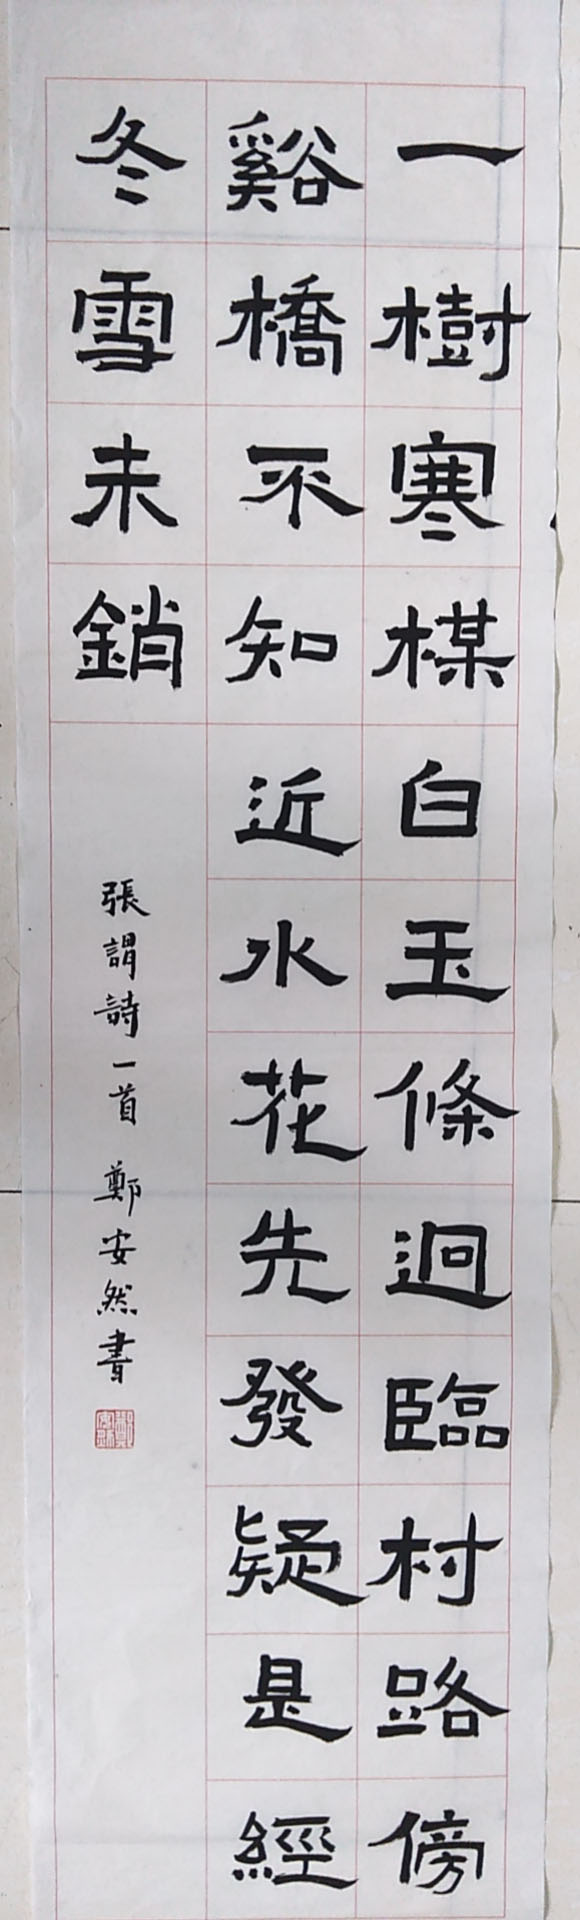 一樹寒楳白玉條迥臨村路傍
谿橋不知近水花先發疑是經
冬雪未銷
張謂詩一首 鄭安然書